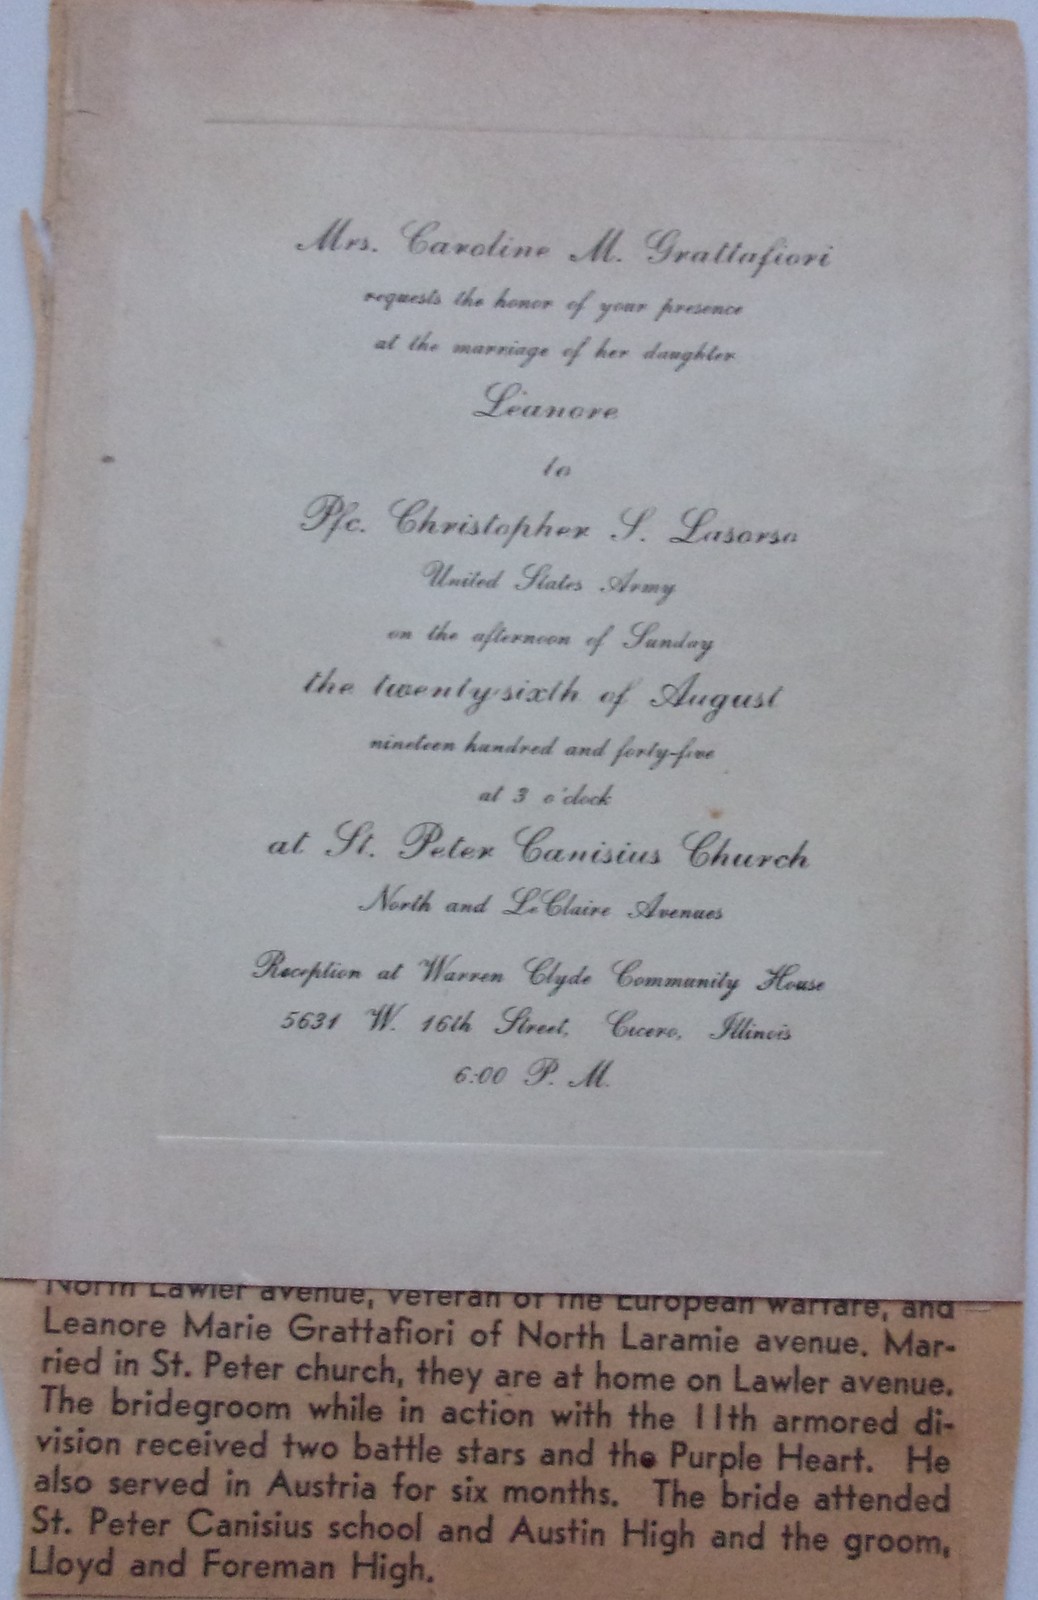 Mrs. Caroline M. Grattafiori
requests the honor of your presence
at the marriage of her daughter
Leanore
to
Pfc. Christopher S. Lasorsa
United States Army
on the afternoon of Sunday
the twenty-sixth of August
nineteen hundred and forty-five
at 3 o'clock
at St. Peter Canisius Church
North and LeClaire Avenues
Reception at Warren Clyde Community House
5631 W. 16th Street, Cicero, Illinois
6:00 P. M.
North Lawler avenue, veteran of the European warfare, and
Leanore Marie Grattafiori of North Laramie avenue. Mar-
ried in St. Peter church, they are at home on Lawler avenue.
The bridegroom while in action with the 11th armored di-
vision received two battle stars and the Purple Heart. He
also served in Austria for six months. The bride attended
St. Peter Canisius school and Austin High and the groom,
Lloyd and Foreman High.